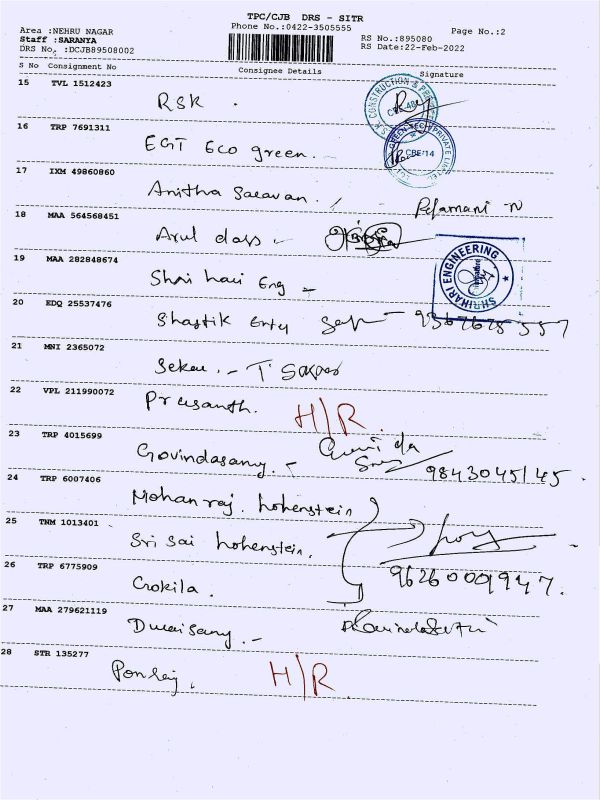 TPC/CJB DRS - SITR
Area :NEHRU NAGAR Phone No.:0422-3505555 Page No.:2
Staff :SARANYA RS No.:895080
DRS No. :DCJB89508002 RS Date:22-Feb-2022
S No Consignment No Consignee Details Signature
15 TVL 1512423
RSK .
16 TRP 7691311
EGT Eco green.
CBE-14
17 IXM 49860860
Anitha Saravan.
18 MAA 564568451
Arul dass
19 MAA 282848674
Shri hari Eng
SHRIHARI ENGINEERING
20 EDQ 25537476
Shastik Enty
21 MNI 2365072
Sekar
22 VPL 211990072
Prasanth. H/R.
23 TRP 4015699
Govindasamy. 9843045145.
24 TRP 6007406
Mohanraj. hohenstein
25 TNM 1013401
Sri Sai hohenstein.
96260009947.
26 TRP 6775909
Gokila.
27 MAA 279621119
Duraisamy.
28 STR 135277
Ponraj. H/R.